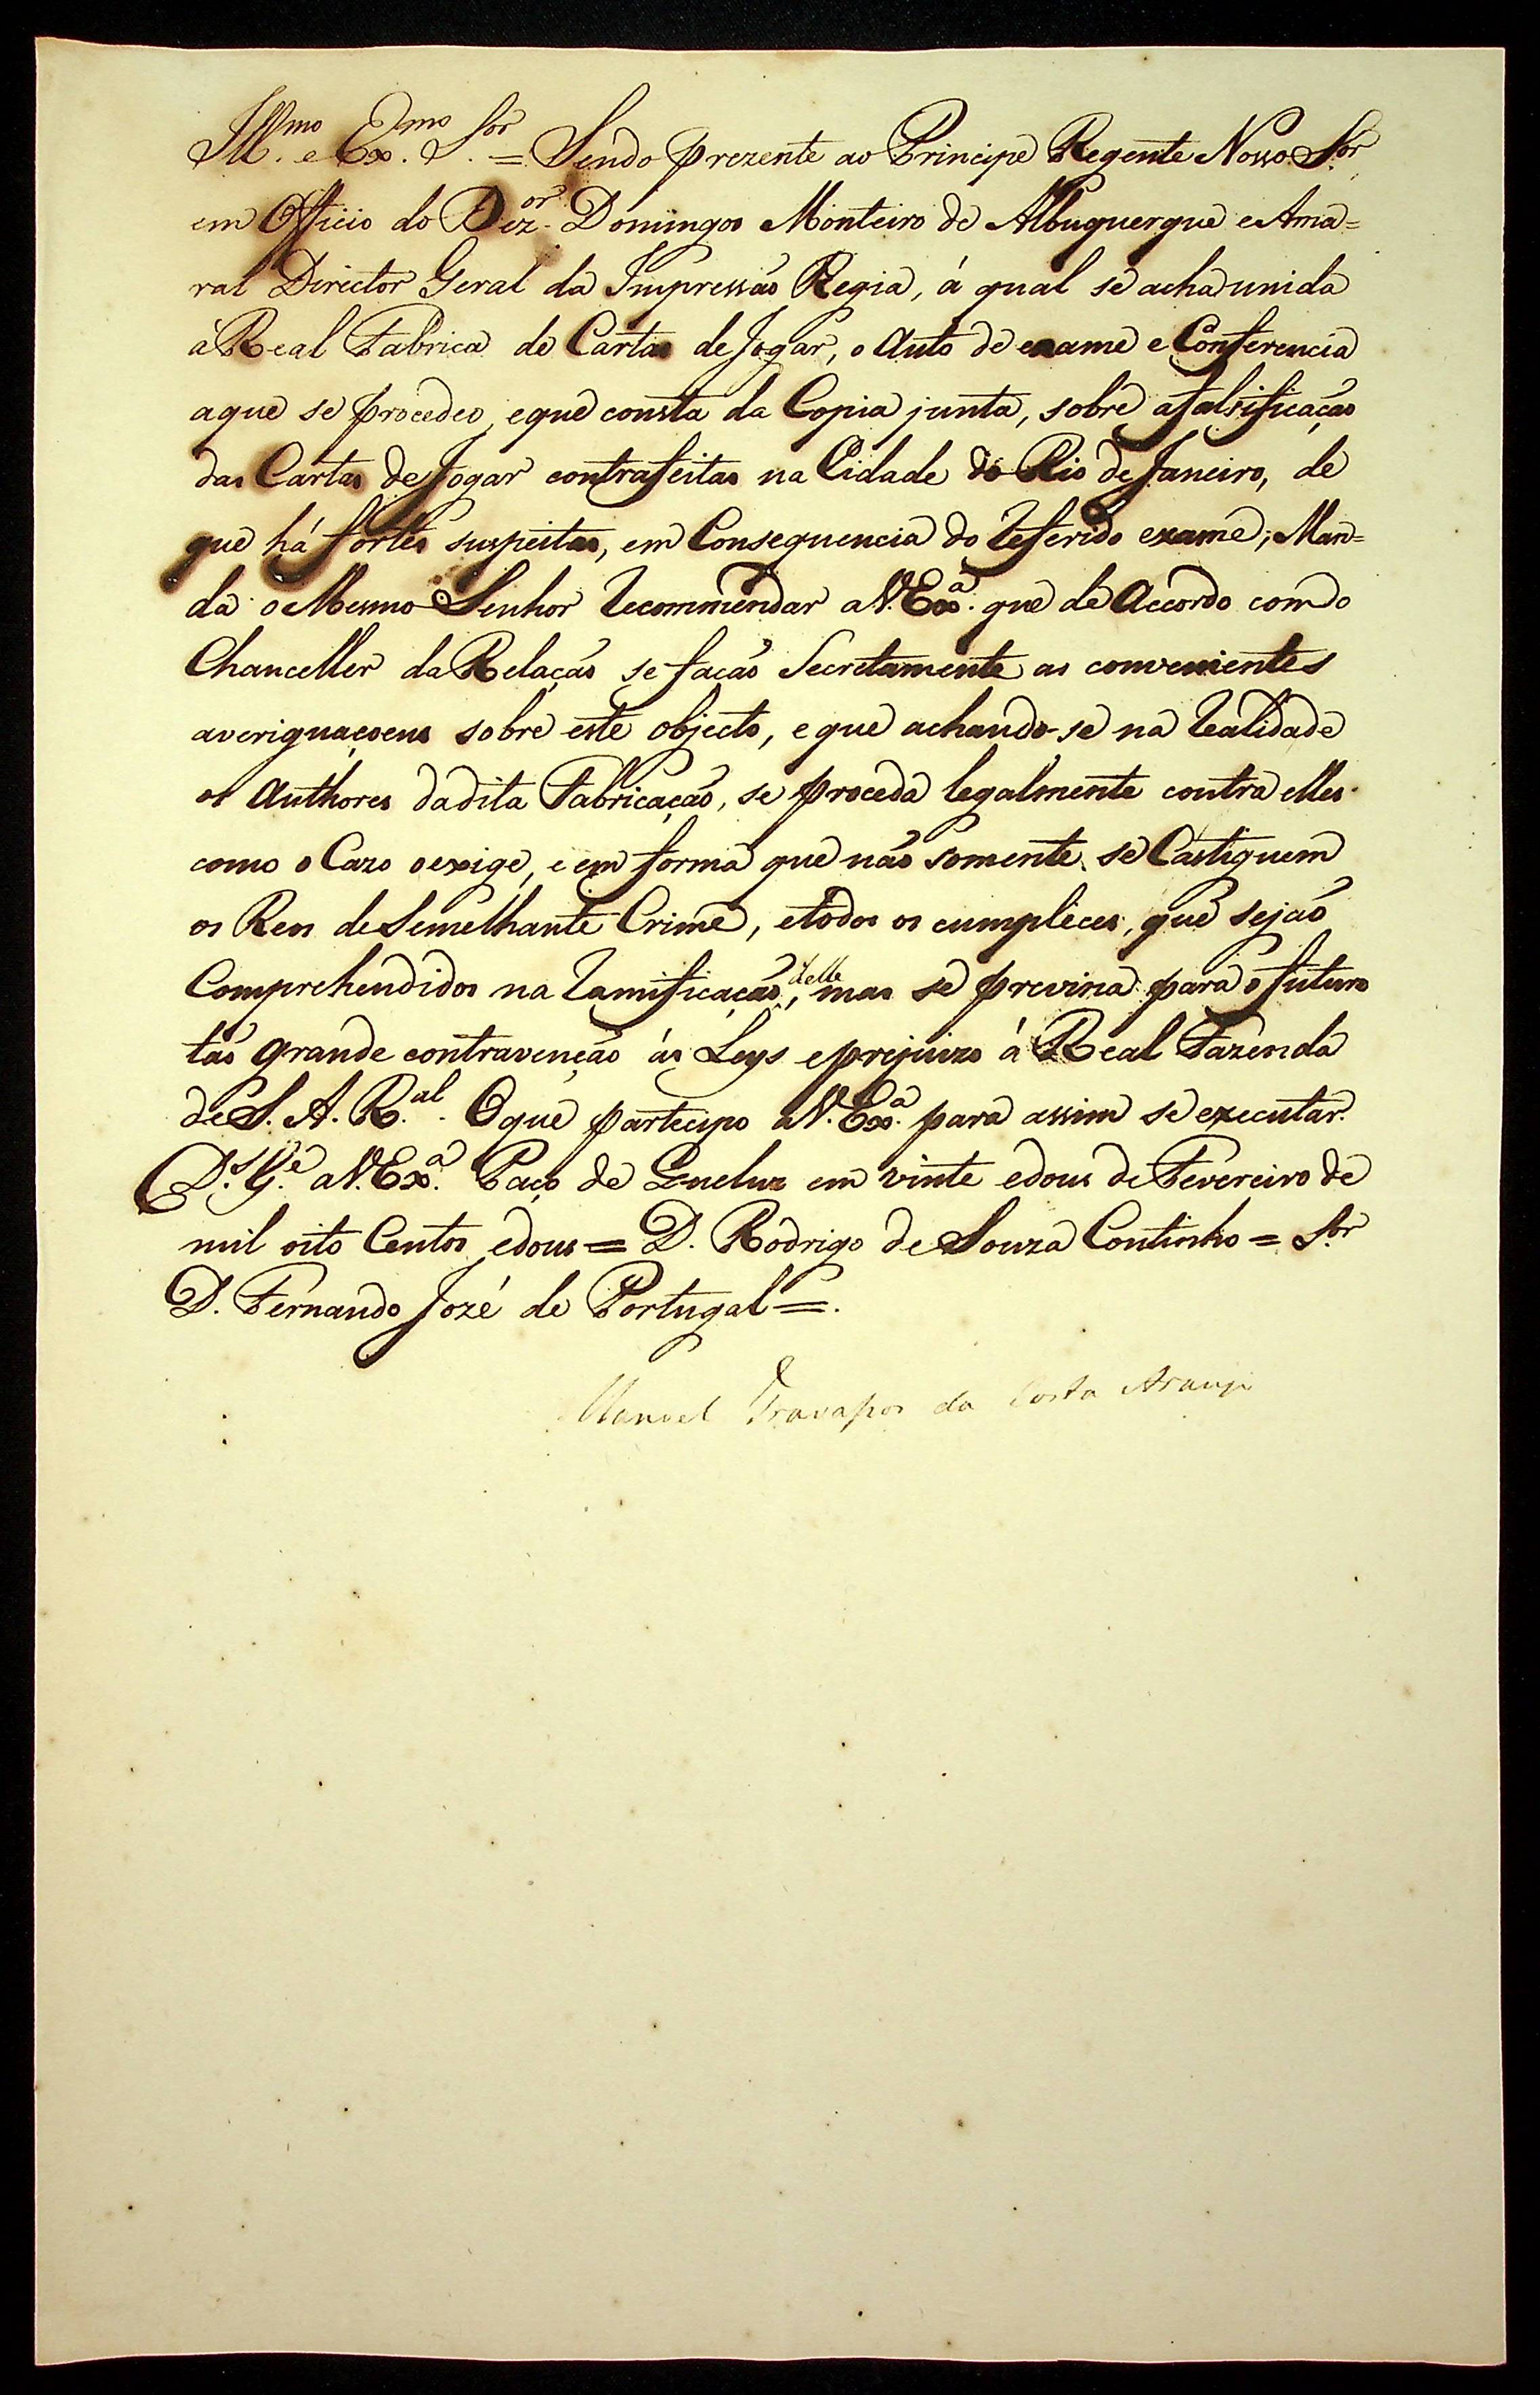 Ill.mo e Ex.mo S.or = Sendo prezente ao Principe Regente Nosso S.or
em Officio do Dez.or Domingos Monteiro de Albuquerque e Ama=
ral Director Geral da Impressaõ Regia, á qual se acha unida
a Real Fabrica de Cartas de Jogar, o Auto de exame e Conferencia
a que se procedeo, e que consta da Copia junta, sobre a falsificaçaõ
das Cartas de Jogar contrafeitas na Cidade do Rio de Janeiro, de
que há fortes suspeitas, em Consequencia do referido exame; Man=
da o Mesmo Senhor recommendar a V. Ex.a que de Accordo com o
Chanceller da Relaçaõ se façaõ Secretamente as convenientes
averiguaçoens sobre este objecto, e que achando-se na realidade
os Authores da dita Fabricaçaõ, se proceda legalmente contra elles
como o Cazo o exige, e em forma que naõ somente se Castiguem
os Reos de Semelhante Crime, e todos os cumplices, que sejaõ
Comprehendidos na ramificaçaõ delle, mas se previna para o futuro
taõ grande contravençaõ ás Leys e prejuizo á Real Fazenda
de S. A. R.al. O que participo a V. Ex.a para assim se executar.
D.s G.e a V. Ex.a Paço de Queluz em vinte e dous de Fevereiro de
mil oito Centos e dous = D. Rodrigo de Souza Coutinho = S.or
D. Fernando Jozé de Portugal =.
Manoel Travassos da Costa Araujo